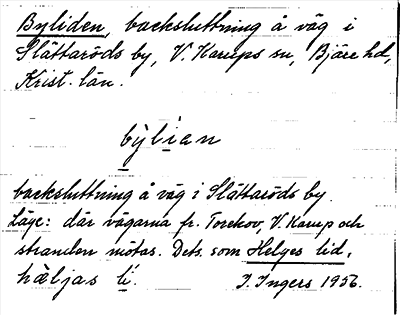 Byliden, backsluttning å väg i
Slättaröds by, V. Karups sn, Bjäre hd,
Krist. län.
by̆lian
backsluttning å väg i Slättaröds by.
Läge: där vägarna fr. Torekov, V. Karup och
stranden mötas. Dets. som Helges lid,
hæljas li. I. Ingers 1956.